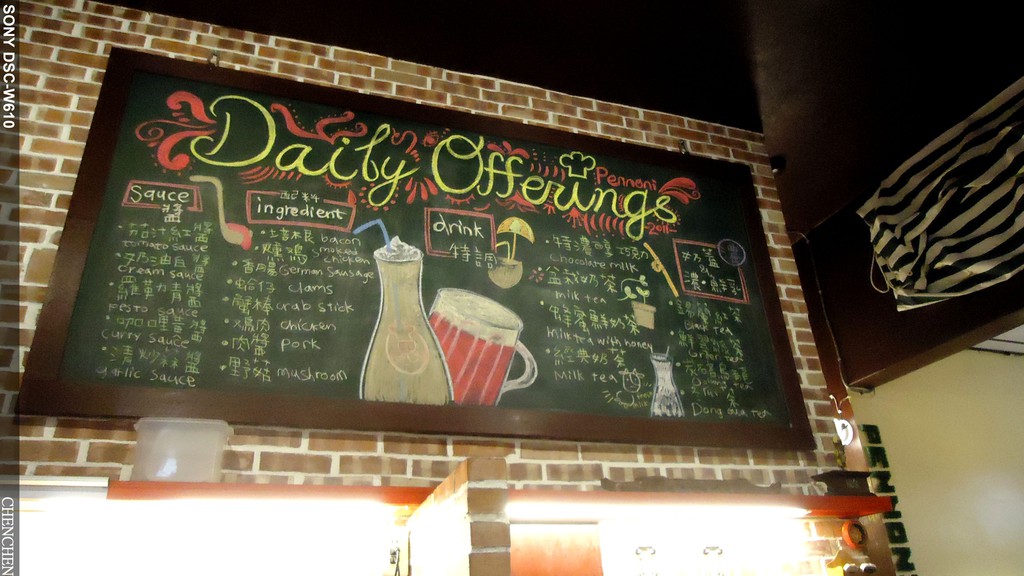 SONY DSC-W610
Daily Offerings
Pennoni
2011
sauce
醬
茄汁紅醬
tomato sauce
奶油白醬
cream sauce
青醬
Pesto sauce
咖哩醬
curry sauce
清炒蒜醬
garlic sauce
配料
ingredient
培根 bacon
燻雞 smoke chicken
香腸 German sausage
蛤仔 clams
蟹棒 crab stick
雞肉 chicken
肉醬 pork
野菇 mushroom
drink
特調
特濃醇巧克
chocolate milk
盆栽奶茶
milk tea
蜂蜜鮮奶茶
milk tea with honey
經典奶茶
milk tea
奶蓋
tea
CHENCHEN